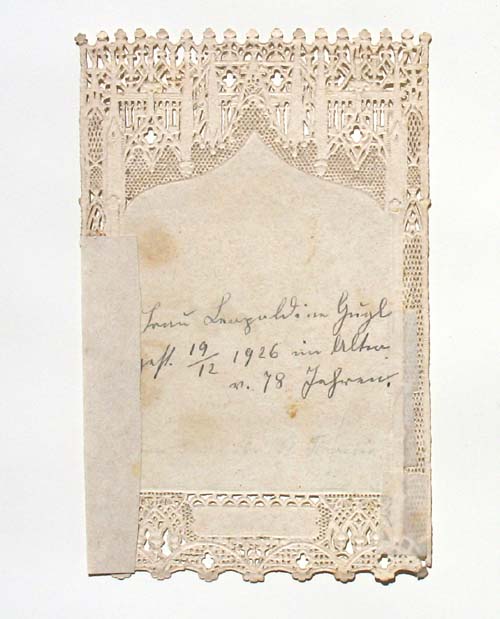 Frau Leopoldine Gugl
gest. 19/12 1926 im Alter
v. 78 Jahren.